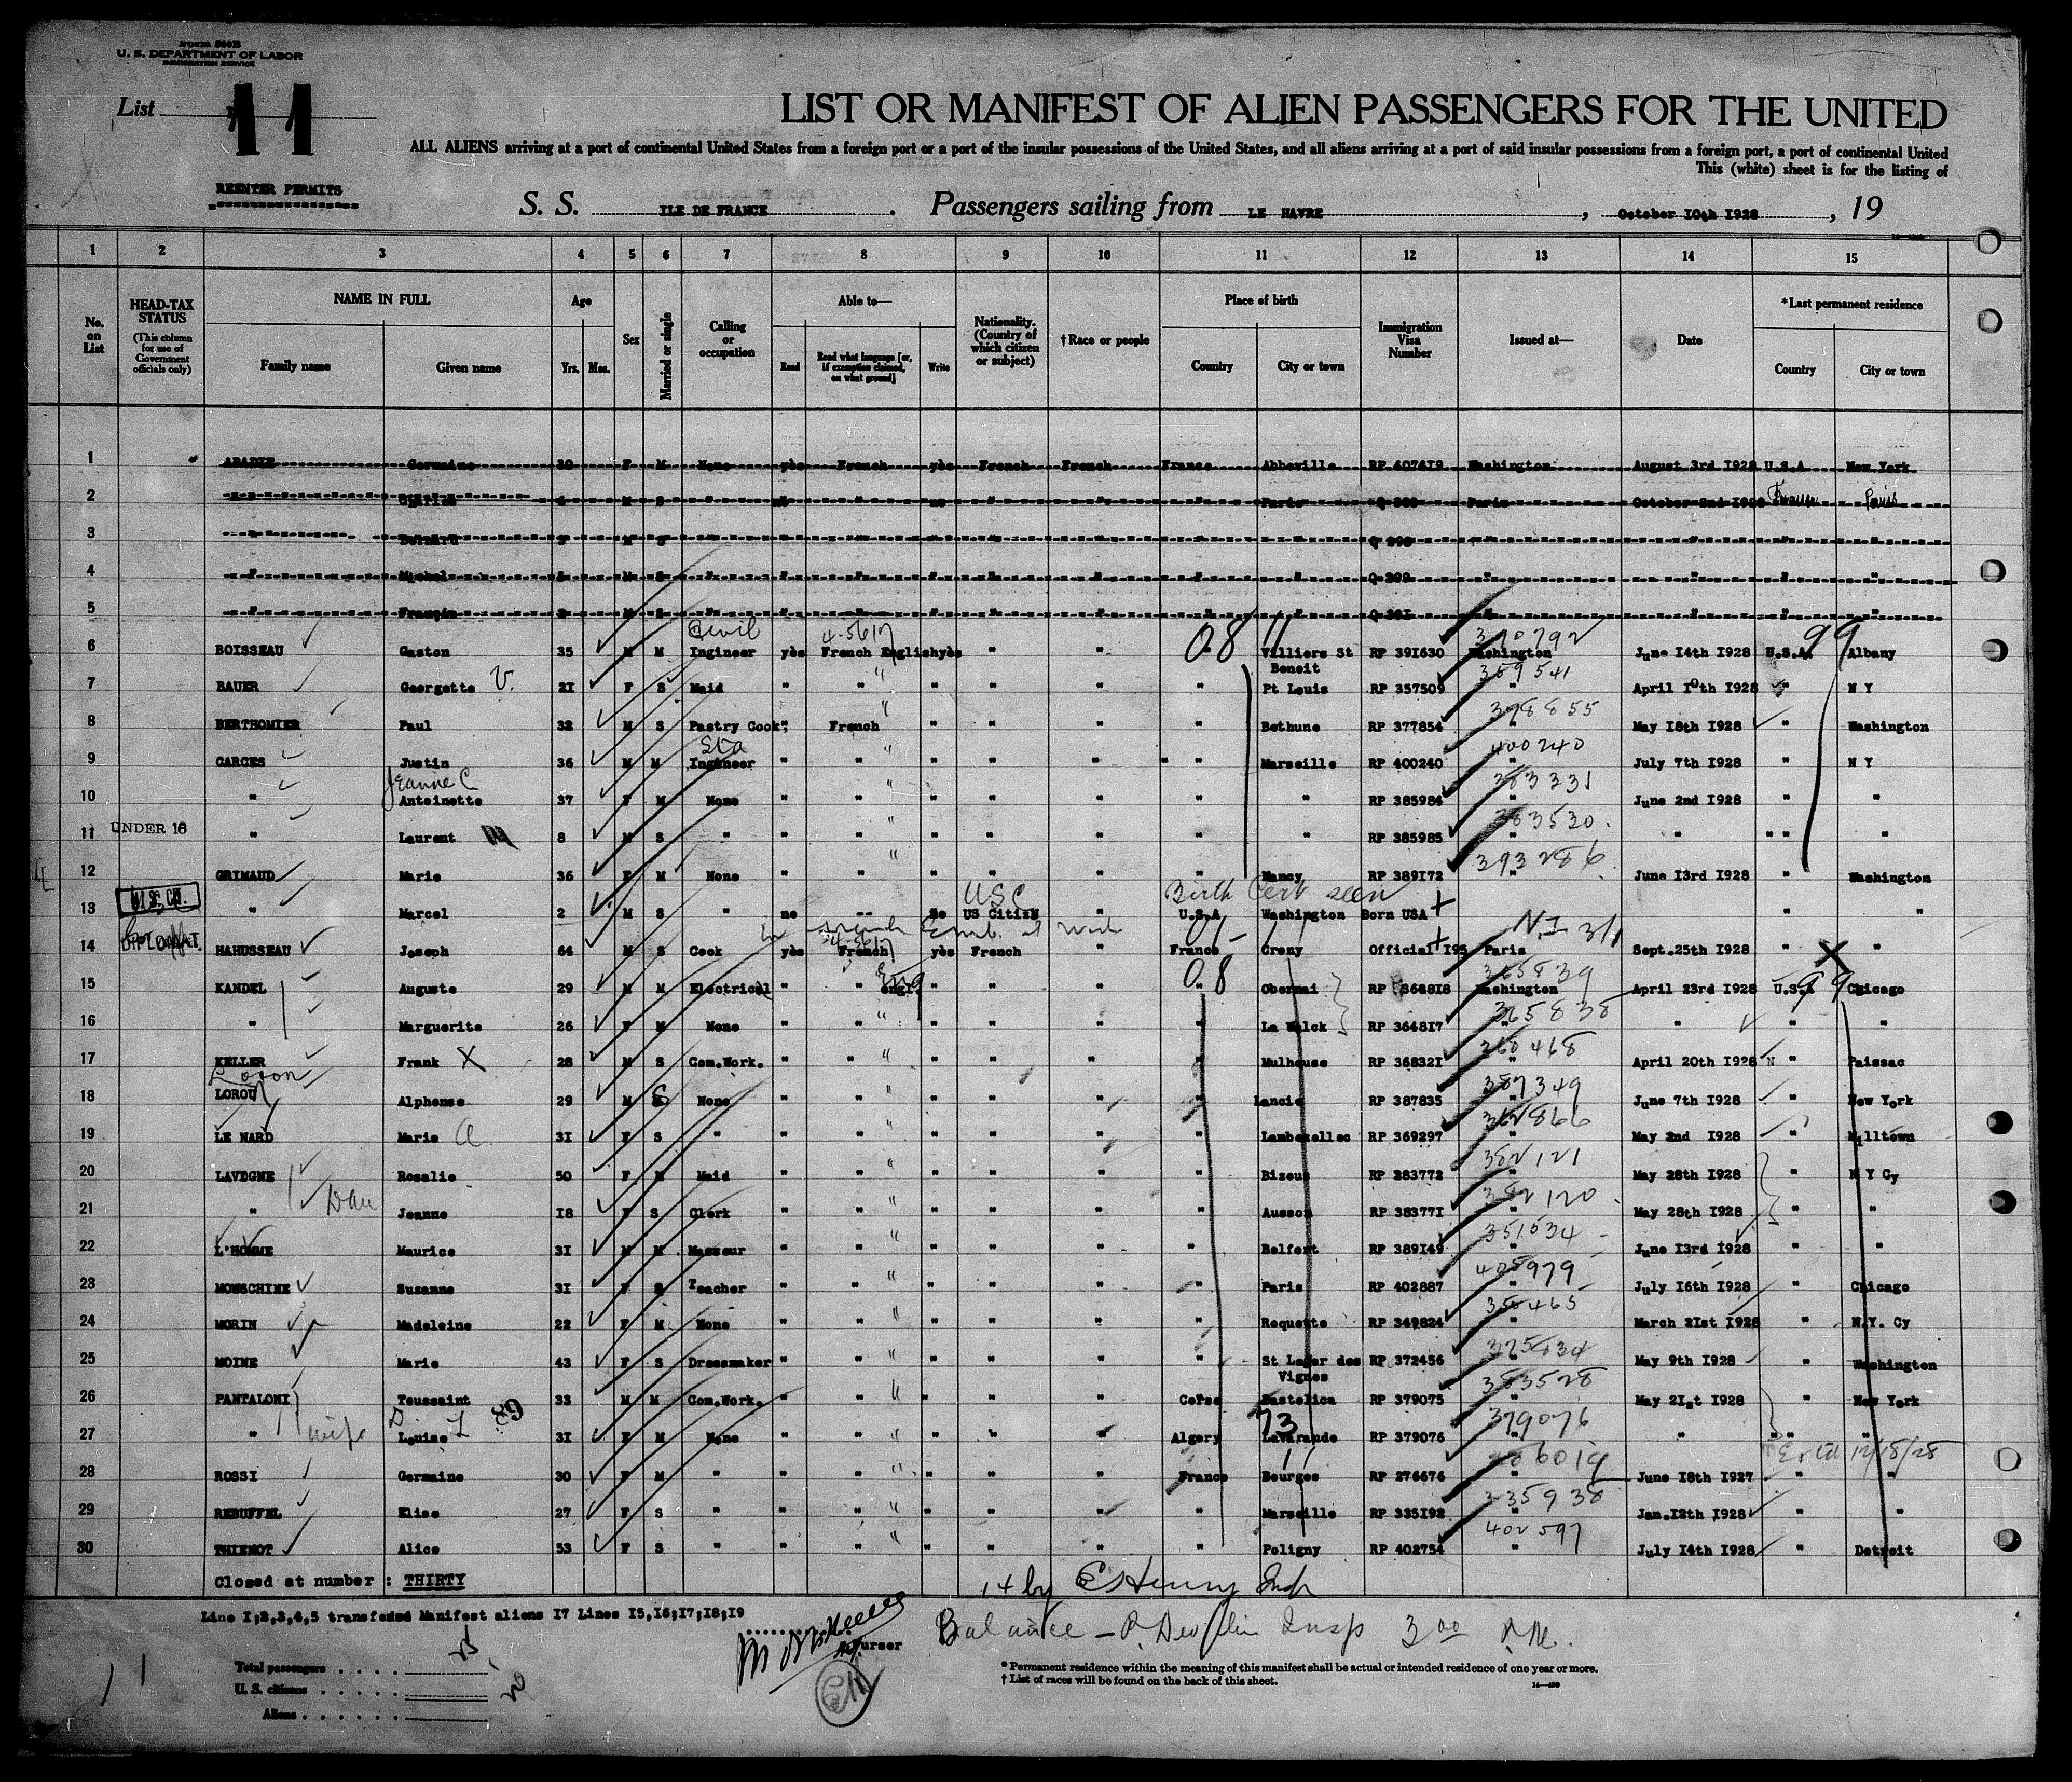 Form 500B
U. S. DEPARTMENT OF LABOR
IMMIGRATION SERVICE
List 11
LIST OR MANIFEST OF ALIEN PASSENGERS FOR THE UNITED
ALL ALIENS arriving at a port of continental United States from a foreign port or a port of the insular possessions of the United States, and all aliens arriving at a port of said insular possessions from a foreign port, a port of continental United
This (white) sheet is for the listing of
REENTER PERMITS
S. S. ILE DE FRANCE. Passengers sailing from LE HAVRE, October 10th 1928, 19
1 2 3 4 5 6 7 8 9 10 11 12 13 14 15
No. on List
HEAD-TAX STATUS (This column for use of Government officials only)
NAME IN FULL Family name Given name
Age Yrs. Mos.
Sex
Married or single
Calling or occupation
Able to— Read Read what language [or, if exemption claimed, on what ground] Write
Nationality. (Country of which citizen or subject)
†Race or people
Place of birth Country City or town
Immigration Visa Number
Issued at—
Date
*Last permanent residence Country City or town
1 ABADIE Germaine 30 F M None yès French yès French French France Abbeville RP 407419 Washington August 3rd 1928 U.S.A New York
2 M S " no no Paris Paris October 2nd 1928 France Paris
3 Bernard M S
4 " Michel M S " " " " " " " " " " " "
5 " François M S " " " " " " " " " " " "
6 BOISSEAU Gaston 35 M M Civil Ingineer yès French English yès " " 08 11 Villiers St Beneit RP 391630 390792 Washington June 14th 1928 U.S.A. 99 Albany
7 BAUER Georgette V. 21 F S Maid " " " " " " " Pt Louis RP 357509 359541 " April 10th 1928 " N Y
8 BERTHOMIER Paul 32 M S Pastry Cook " French " " " " " Bethune RP 377854 378855 " May 18th 1928 " Washington
9 GARCES Justin 36 M M Sta Ingineer " " " " " " " Marseille RP 400240 400240 " July 7th 1928 " N Y
10 " Jeanne C Antoinette 37 F M None " " " " " " " " RP 385984 383331 " June 2nd 1928 " "
11 UNDER 16 " Laurent 8 M S " " " " " " " " " RP 385985 383530 " " " "
12 GRIMAUD Marie 36 F M None " " " " " " " Nancy RP 389172 393286 " June 13rd 1928 " Washington
13 " Marcel 2 M S " no -- no USC US Citizn " Birth Cert seen U.S.A Washington Born USA " "
14 DIPLOMAT HAHUSSEAU Joseph 64 M S Cook yès French yès French " France Creny Official 195 Paris Sept.25th 1928 " "
15 KANDEL Auguste 29 M M Electrical " " engl. Eng " " " 08 " Obernai RP 364818 365839 Washington April 23rd 1928 U.S.A 99 Chicago
16 " Marguerite 26 F M None " " " " " " " La Walck RP 364817 365838 " " " "
17 KELLER Frank X 28 M S Com.Work. " " " " " " " Mulhouse RP 368321 368468 " April 20th 1928 " Paissac
18 LOROU Alphonse 29 M S None " " " " " " " Lancie RP 387835 387349 " June 7th 1928 " New York
19 LE NARD Marie A 31 F S " " " " " " " " Lambezellec RP 369297 " May 2nd 1928 " Milltown
20 LAVEGNE Rosalie 50 F M Maid " " " " " " " Bizous RP 383772 382121 " May 28th 1928 " N Y Cy
21 " Dau Jeanne 18 F S Clerk " " " " " " " Ausson RP 383771 382120 " May 28th 1928 " "
22 L'HOMME Maurice 31 M M Masseur " " " " " " " Belfort RP 389149 " June 13rd 1928 " "
23 MONSCHINE Suzanne 31 F S Teacher " " " " " " " Paris RP 402887 405979 " July 16th 1928 " Chicago
24 MORIN Madeleine 22 F M None " " " " " " " Roquette RP 349824 350465 " March 21st 1928 " N.Y. Cy
25 MOINE Marie 43 F S Dressmaker " " " " " " " St Leger des Vignes RP 372456 375834 " May 9th 1928 " Washington
26 PANTALONI Toussaint 33 M M Com.Work. " " " " " " Corse Bastelica RP 379075 383528 " May 21st 1928 " New York
27 " wife Louise 31 F M None " " " " " " Algery 73 Lavarande RP 379076 379076 " " " "
28 ROSSI Germaine 30 F M " " " " " " " France 11 Bourges RP 276676 " June 18th 1927 Extd 12/18/28 " "
29 REBUFFEL Elise 27 F S " " " " " " " " Marseille RP 335192 335938 " Jan.12th 1928 " "
30 THIENOT Alice 53 F S " " " " " " " " Poligny RP 402754 402597 " July 14th 1928 " Detroit
Closed at number : THIRTY
14 by E Henry Insp
Line 1;2,3,4,5 transfered Manifest aliens 17 Lines 15,16;17;18;19
Balance — Insp 3 00 P.M.
Purser
Total passengers
U. S. citizens
Aliens
* Permanent residence within the meaning of this manifest shall be actual or intended residence of one year or more.
† List of races will be found on the back of this sheet.